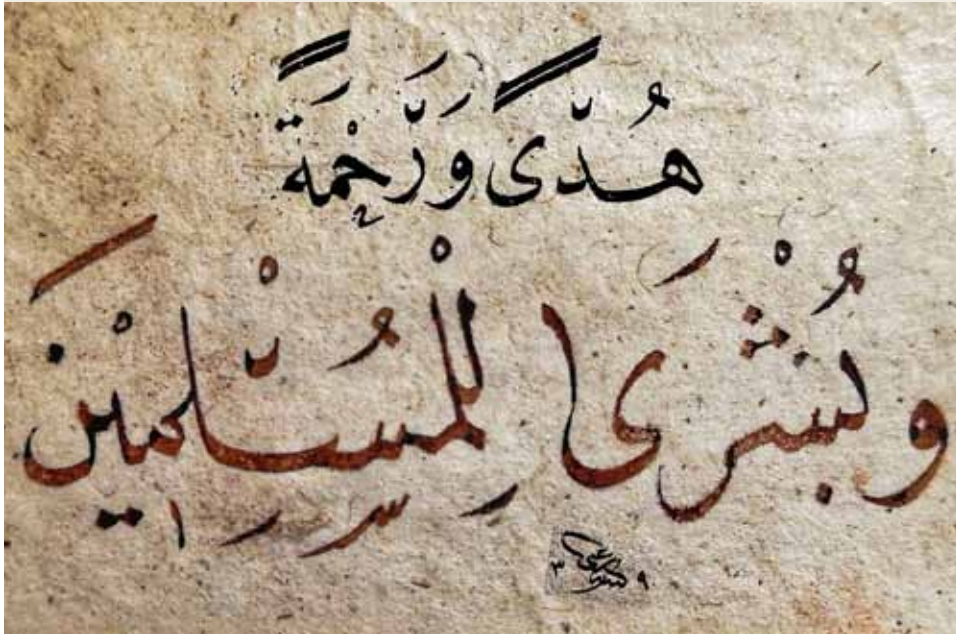 هُدّىً وَرَّحْمَةً
وَبُشْرَى لِلْمُسْلِمِيْنَ